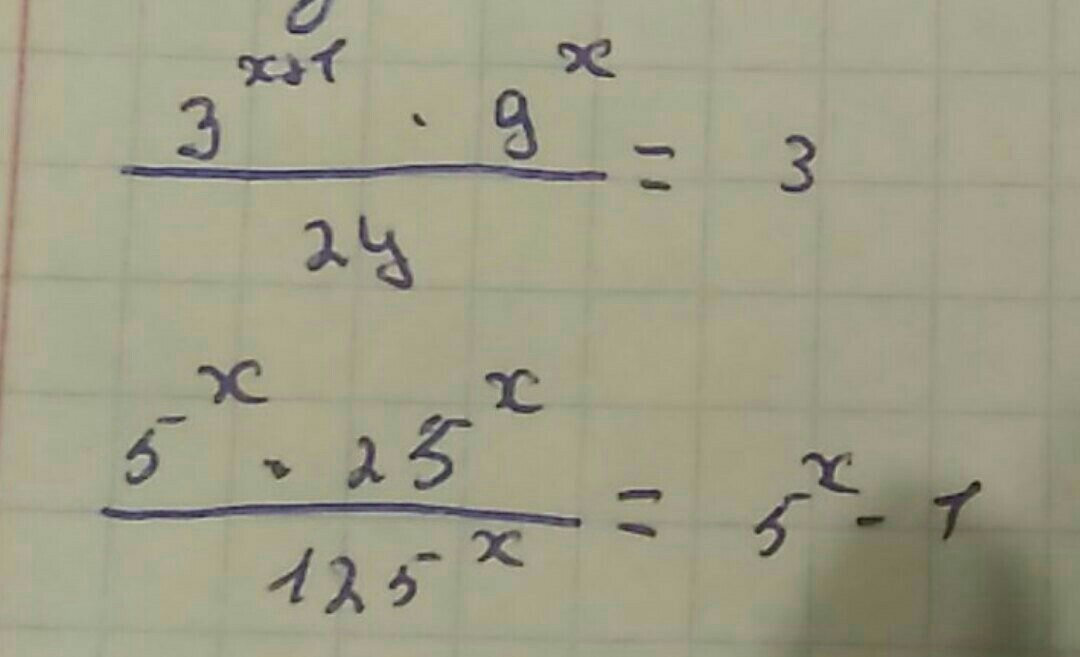 3^{x+1} · 9^x
/ 2y = 3
5^x · 25^x
/ 125^x = 5^x - 1